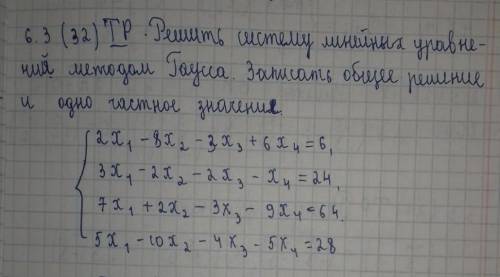 6.3 (32) ТР. Решить систему линейных уравне-
ний методом Гаусса. Записать общее решение
и одно частное значение.
2x₁ - 8x₂ - 3x₃ + 6x₄ = 6,
3x₁ - 2x₂ - 2x₃ - x₄ = 24,
7x₁ + 2x₂ - 3x₃ - 9x₄ = 64.
5x₁ - 10x₂ - 4x₃ - 5x₄ = 28